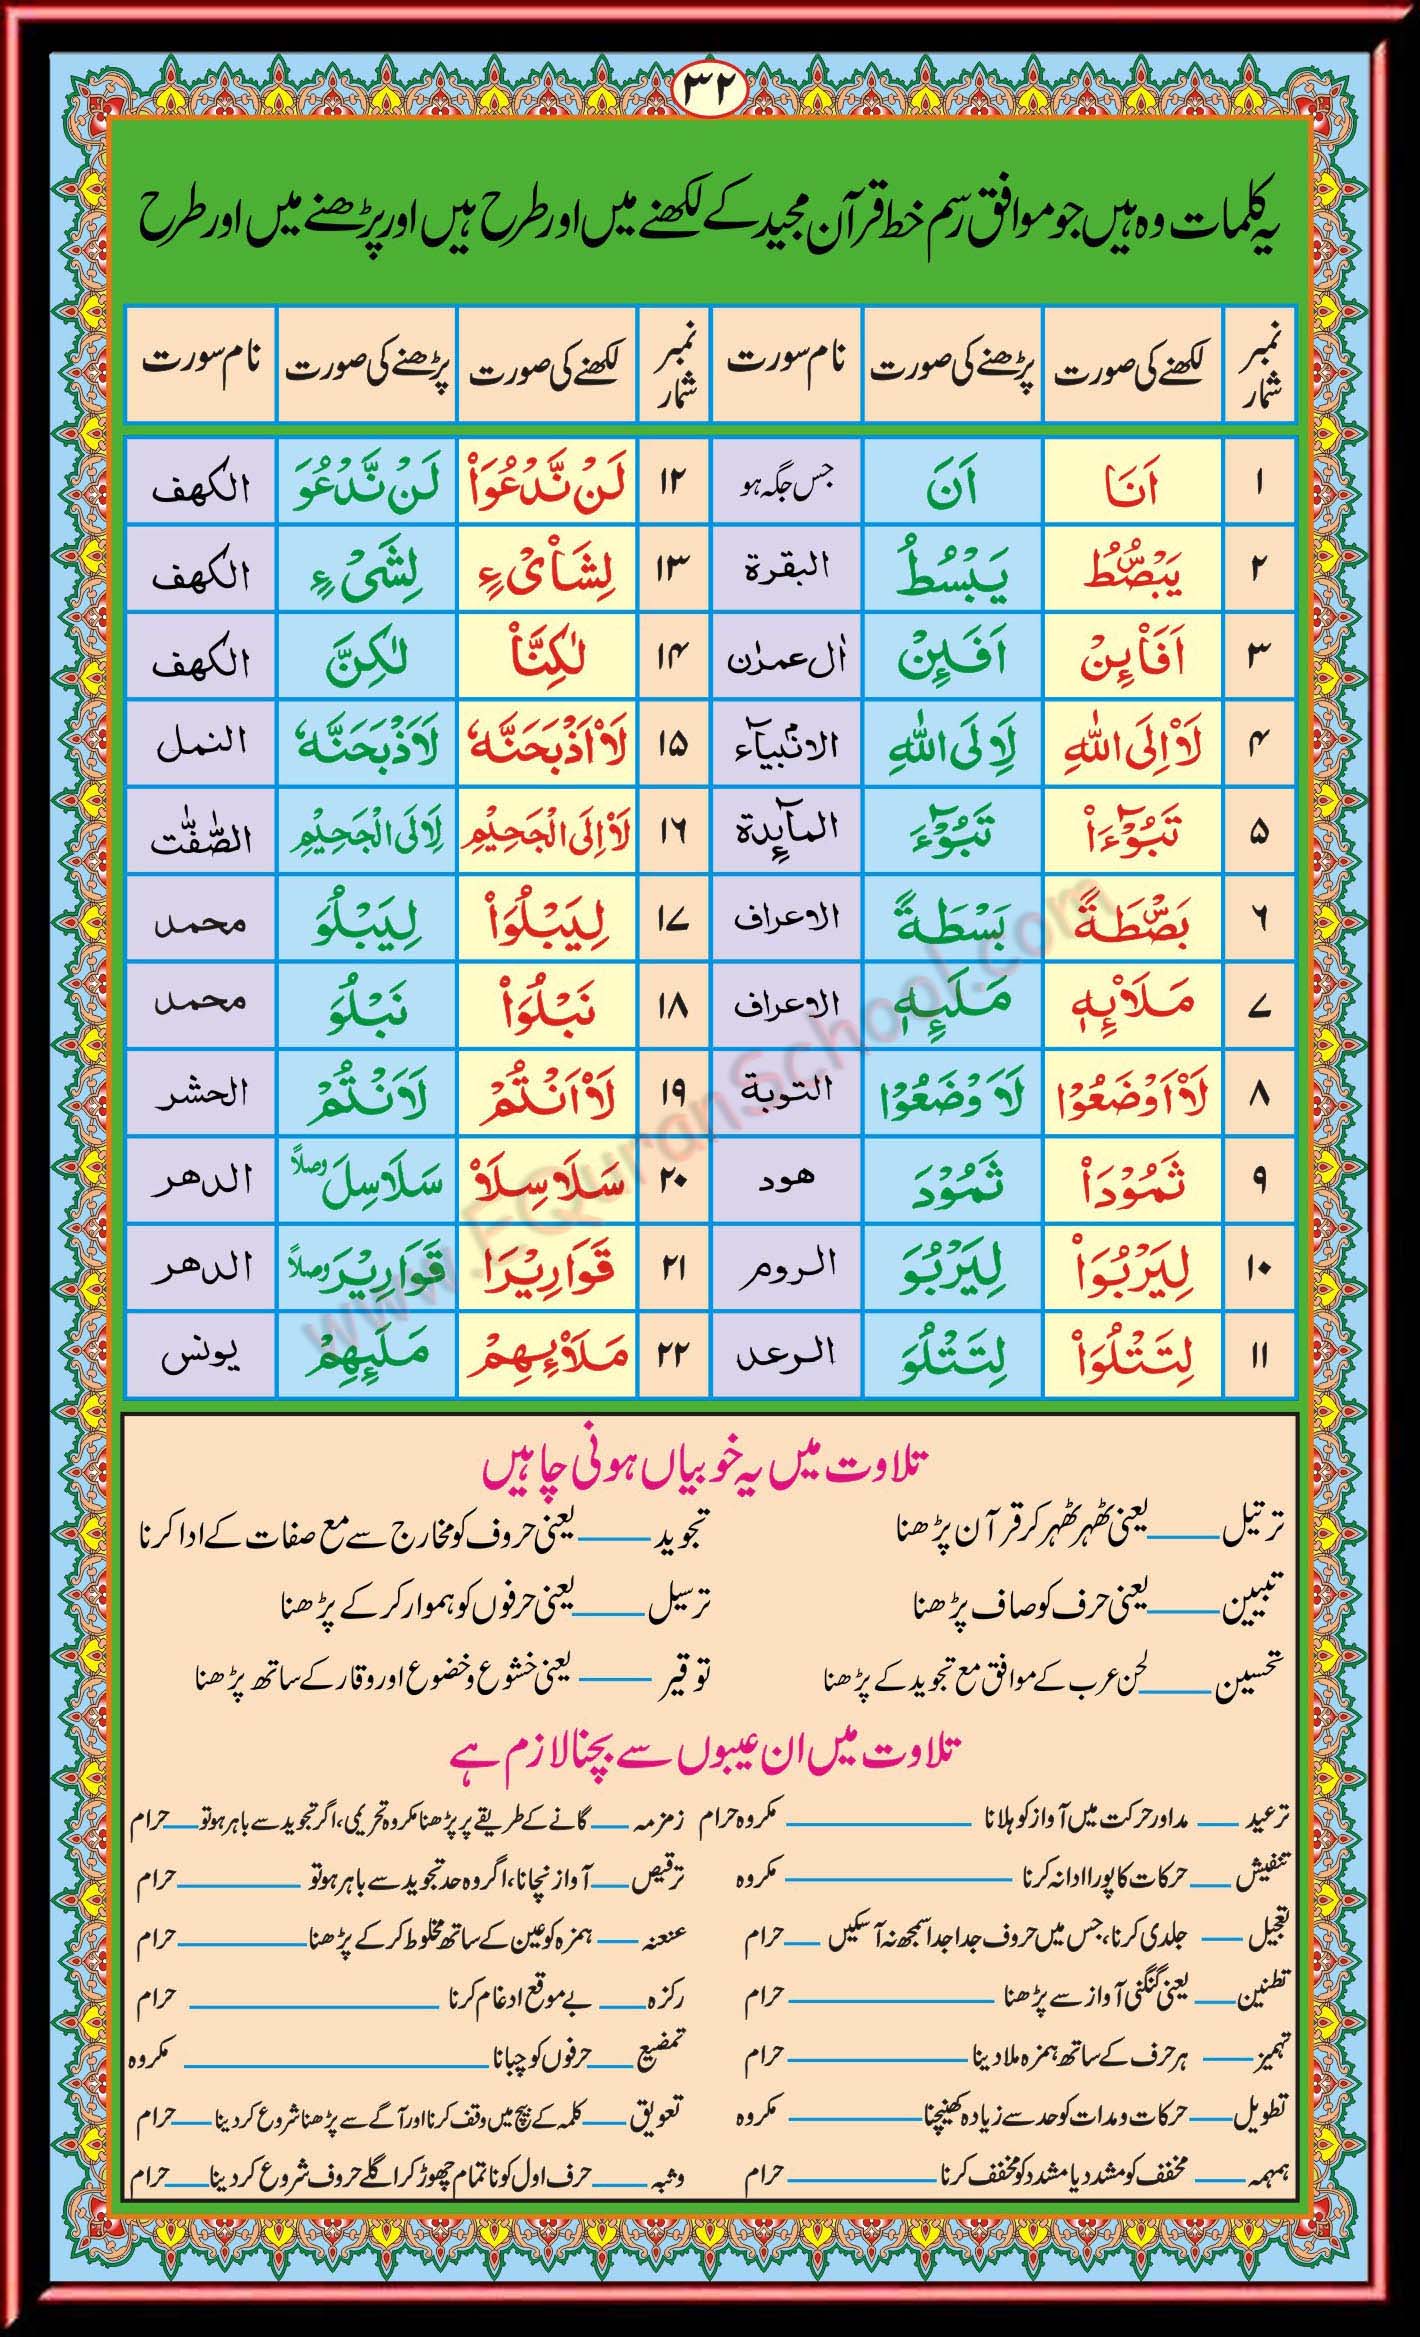 ۳۲
یہ کلمات وہ ہیں جو موافق رسم خط قرآن مجید کے لکھنے میں اور طرح ہیں اور پڑھنے میں اور طرح
نمبر شمار لکھنے کی صورت پڑھنے کی صورت نام سورت نمبر شمار لکھنے کی صورت پڑھنے کی صورت نام سورت
۱ اَنَا اَنَ جس جگہ ہو ۱۲ لَنْ نَّدْعُوَا۟ لَنْ نَّدْعُوَ الکھف
۲ یَبْصُۜطُ یَبْسُطُ البقرة ۱۳ لِشَا۟یْءٍ لِشَیْءٍ الکھف
۳ اَفَا۟ئِنْ اَفَئِنْ اٰل عمرٰن ۱۴ لٰكِنَّا۟ لٰكِنَّ الکھف
۴ لَا۟اِلَی اللّٰهِ لَاِلَی اللّٰهِ الانبیآء ۱۵ لَا۟اَذْبَحَنَّهٗ لَاَذْبَحَنَّهٗ النمل
۵ تَبُوْٓءَا۟ تَبُوْٓءَ المآئدة ۱۶ لَا۟اِلَی الْجَحِیْمِ لَاِلَی الْجَحِیْمِ الصّٰٓفّٰت
۶ بَصْۜطَةً بَسْطَةً الاعراف ۱۷ لِیَبْلُوَا۟ لِیَبْلُوَ محمد
۷ مَلَا۟ئِهٖ مَلَئِهٖ الاعراف ۱۸ نَبْلُوَا۟ نَبْلُوَ محمد
۸ لَا۟اَوْضَعُوْا لَاَوْضَعُوْا التوبة ۱۹ لَا۟اَنْتُمْ لَاَنْتُمْ الحشر
۹ ثَمُوْدَا۟ ثَمُوْدَ ھود ۲۰ سَلَاسِلَا۟ سَلَاسِلَ وصلاً الدھر
۱۰ لِیَرْبُوَا۟ لِیَرْبُوَ الروم ۲۱ قَوَارِیْرَا قَوَارِیْرَ وصلاً الدھر
۱۱ لِتَتْلُوَا۟ لِتَتْلُوَ الرعد ۲۲ مَلَا۟ئِهِمْ مَلَئِهِمْ یونس
www.EQuranSchool.com
تلاوت میں یہ خوبیاں ہونی چاہیں
ترتیل ــــ یعنی ٹھہر ٹھہر کر قرآن پڑھنا تجوید ــــ یعنی حروف کو مخارج سے مع صفات کے ادا کرنا
تبیین ــــ یعنی حرف کو صاف پڑھنا ترسیل ــــ یعنی حرفوں کو ہموار کرکے پڑھنا
تحسین ــــ لحن عرب کے موافق مع تجوید کے پڑھنا توقیر ــــ یعنی خشوع و خضوع اور وقار کے ساتھ پڑھنا
تلاوت میں ان عیبوں سے بچنا لازم ہے
ترعید ــــ مد اور حرکت میں آواز کو ہلانا ــــ مکروہ حرام زمزمہ ــــ گانے کے طریقے پر پڑھنا مکروہ تحریمی، اگر تجوید سے باہر ہو تو ــــ حرام
تنفیش ــــ حرکات کا پورا ادا نہ کرنا ــــ مکروہ ترقیص ــــ آواز نچانا، اگر وہ حد تجوید سے باہر ہو تو ــــ حرام
تعجیل ــــ جلدی کرنا، جس میں حروف جدا جدا سمجھ نہ آسکیں ــــ حرام عنعنہ ــــ ہمزہ کو عین کے ساتھ مخلوط کرکے پڑھنا ــــ حرام
تطنین ــــ یعنی گنگنی آواز سے پڑھنا ــــ حرام رکزہ ــــ بے موقع ادغام کرنا ــــ حرام
تہمیز ــــ ہر حرف کے ساتھ ہمزہ ملا دینا ــــ حرام تمضیغ ــــ حرفوں کو چبانا ــــ مکروہ
تطویل ــــ حرکات و مدات کو حد سے زیادہ کھینچنا ــــ مکروہ تعویق ــــ کلمہ کے بیچ میں وقف کرنا اور آگے سے پڑھنا شروع کر دینا ــــ حرام
ہمہمہ ــــ مخفف کو مشدد یا مشدد کو مخفف کرنا ــــ حرام وثبہ ــــ حرف اول کو ناتمام چھوڑ کر اگلے حروف شروع کر دینا ــــ حرام